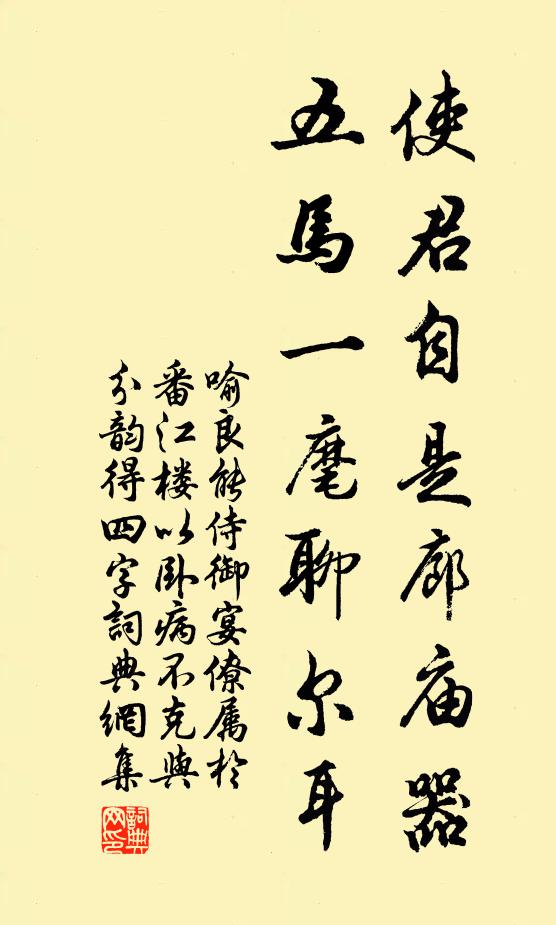 使君自是廊庙器
五馬一麾聊尔耳
喻良能侍御宴僚属於
番江楼以卧病不克與
分韵得四字詞典網集
詞典
网印